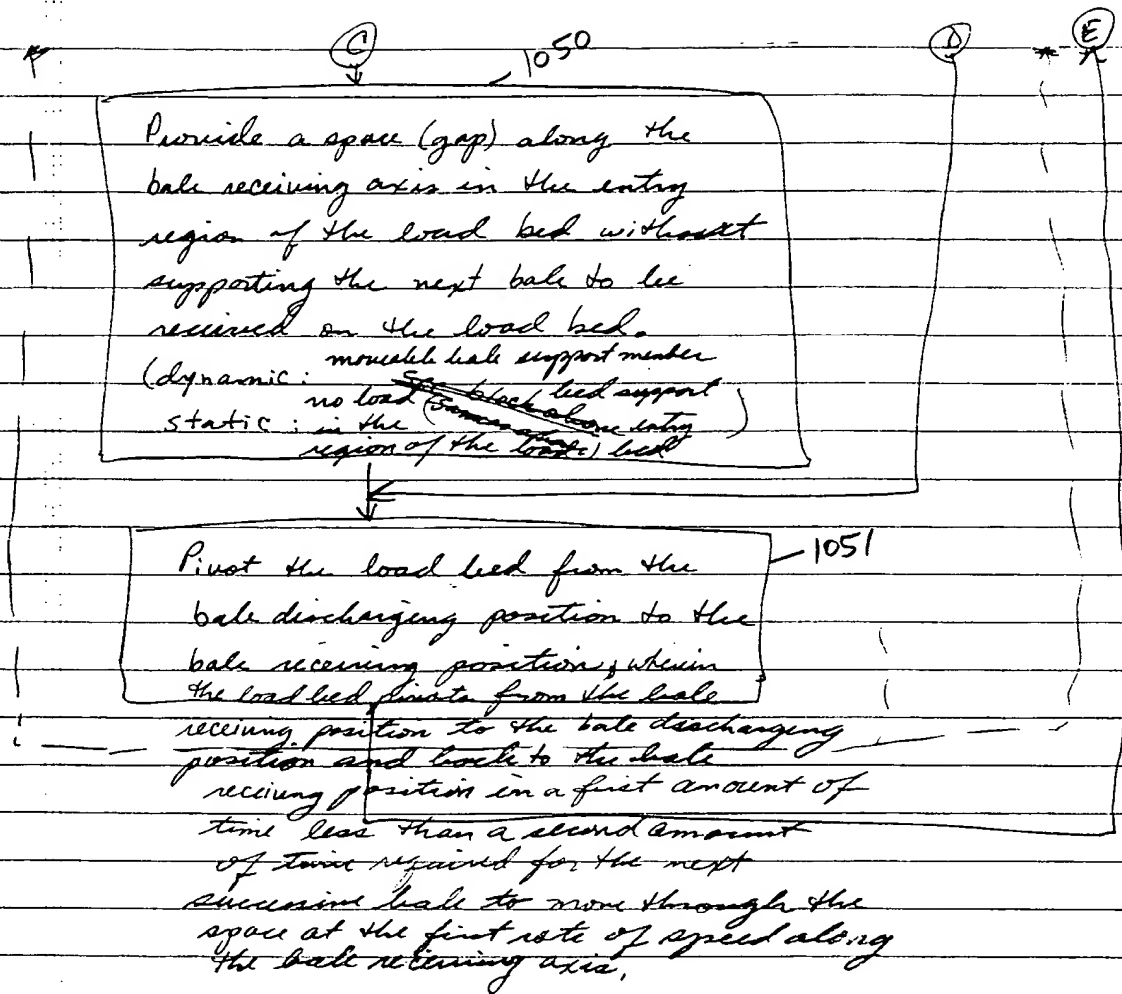 C D E
1050
Provide a space (gap) along the
bale receiving axis in the entry
region of the load bed without
supporting the next bale to be
received on the load bed.
moveable bale support member
(dynamic:
no load bed support
static: in the entry )
region of the load bed
1051
Pivot the load bed from the
bale discharging position to the
bale receiving position, wherein
the load bed pivots from the bale
receiving position to the bale discharging
position and back to the bale
receiving position in a first amount of
time less than a second amount
of time required for the next
successive bale to move through the
space at the first rate of speed along
the bale receiving axis.